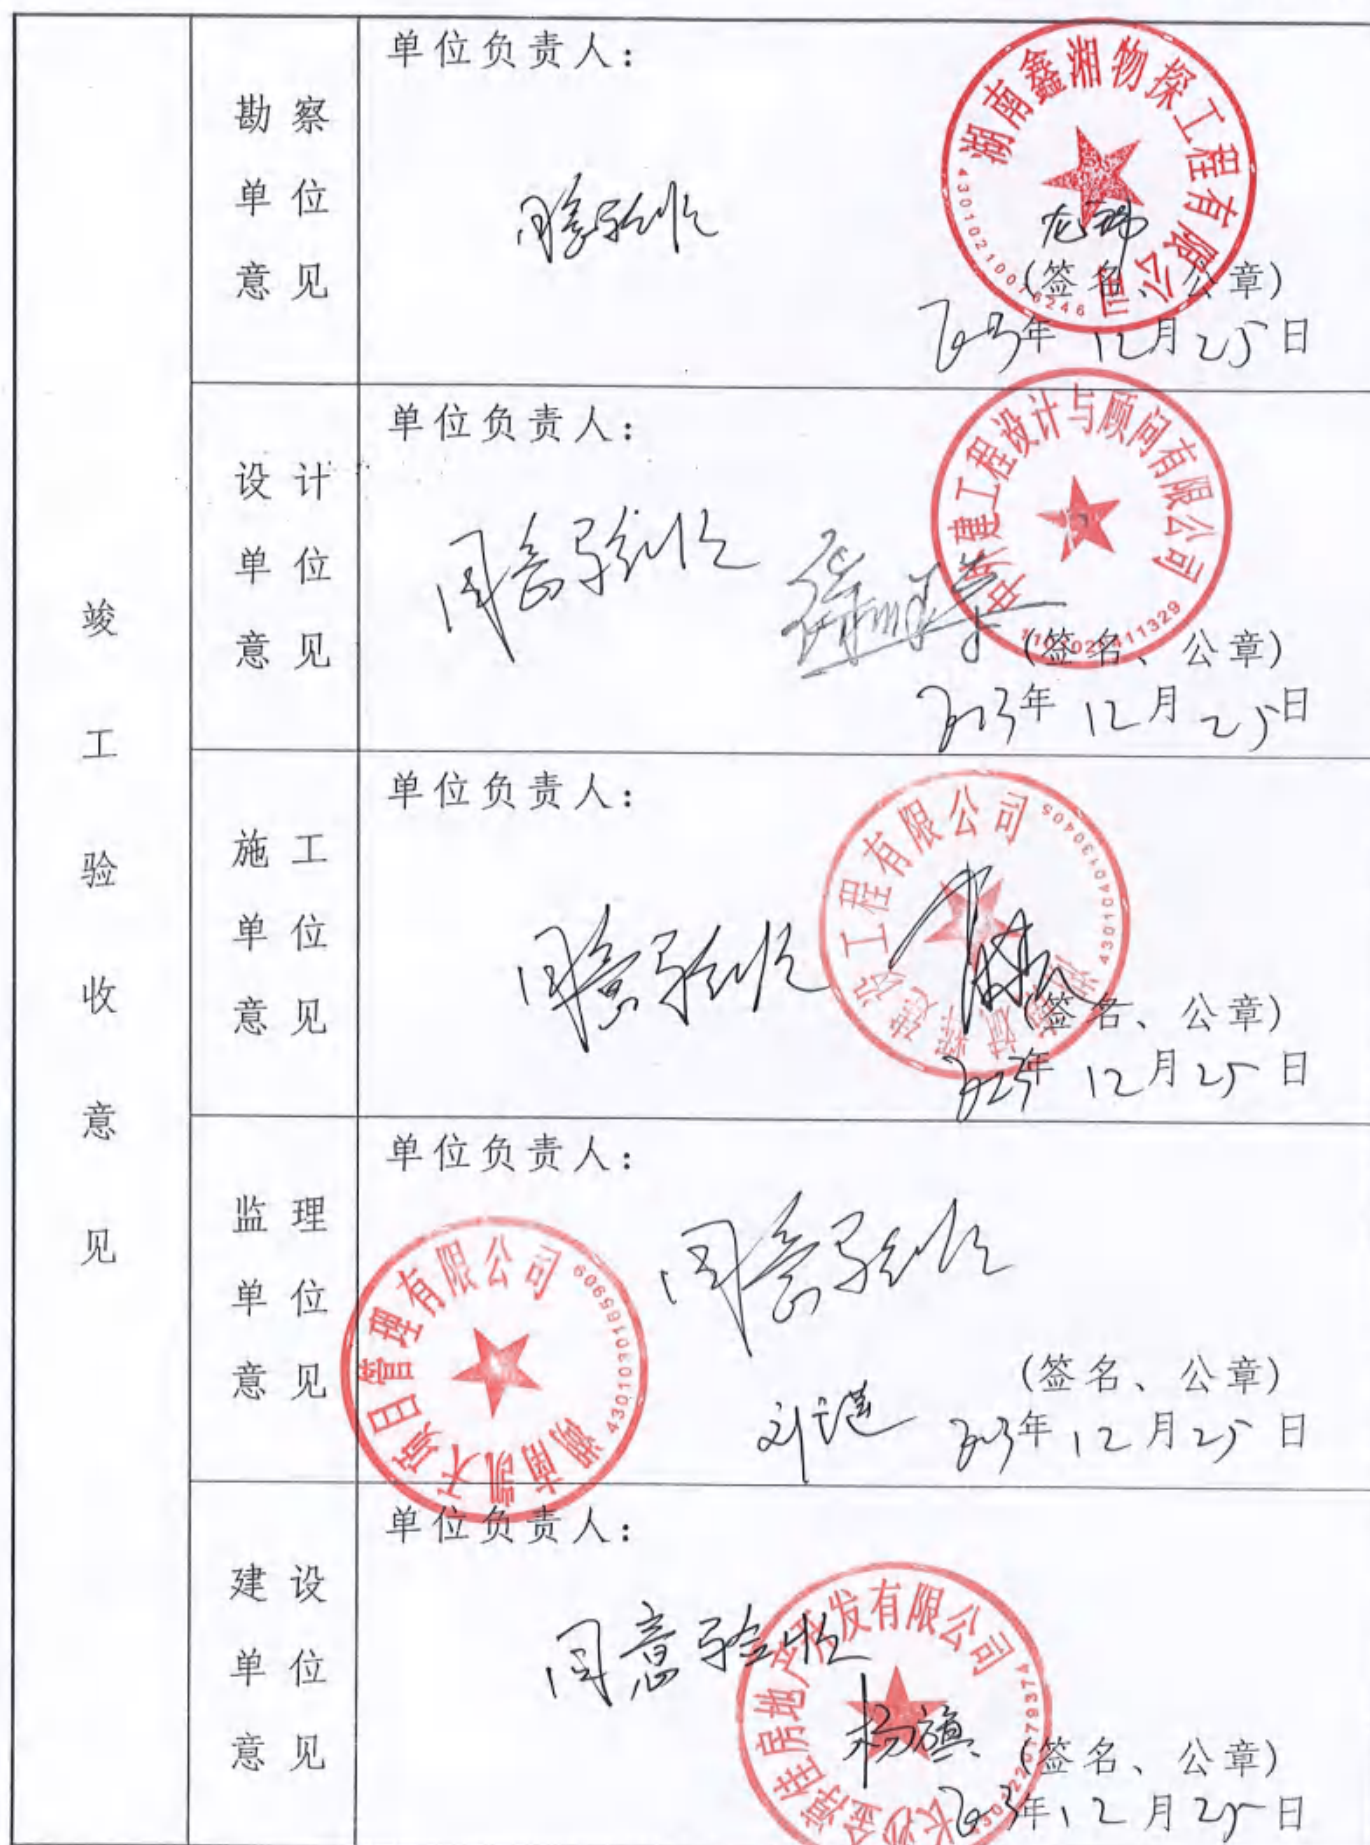 竣工验收意见
勘察单位意见
单位负责人：
同意验收
湖南鑫湘物探工程有限公司
(签名、公章)
2023年12月25日
设计单位意见
单位负责人：
同意验收
中京建工程设计与顾问有限公司
(签名、公章)
2023年12月25日
施工单位意见
单位负责人：
同意验收
建设工程有限公司
4301040130405
(签名、公章)
2023年12月25日
监理单位意见
单位负责人：
同意验收
湖南凯天项目管理有限公司
4301030165909
(签名、公章)
2023年12月25日
建设单位意见
单位负责人：
同意验收
房地产开发有限公司
杨旗
(签名、公章)
2023年12月25日